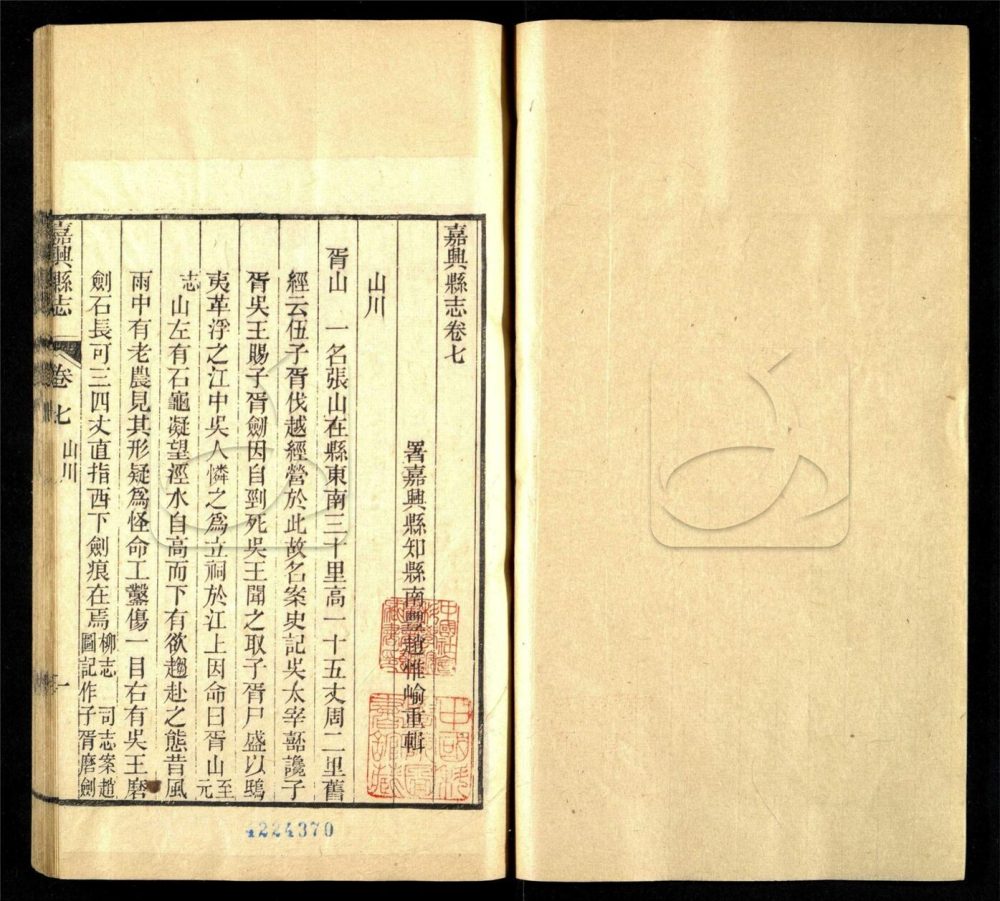 嘉興縣志卷七
署嘉興縣知縣南豐趙惟崳重輯
山川
胥山　一名張山在縣東南三十里高一十五丈周二里舊
經云伍子胥伐越經營於此故名案史記吳太宰嚭讒子
胥吳王賜子胥劍因自剄死吳王聞之取子胥尸盛以鴟
夷革浮之江中吳人憐之爲立祠於江上因命曰胥山至元
志　山左有石龜凝望涇水自高而下有欲趨赴之態昔風
雨中有老農見其形疑爲怪命工鑿傷一目右有吳王磨
劍石長可三四丈直指西下劍痕在焉柳志　司志案趙圖記作子胥磨劍
嘉興縣志
卷七
山川
一
4224370